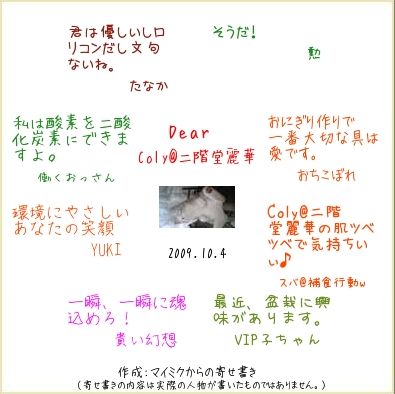 君は優しいしロ
リコンだし文句
ないね。
たなか
そうだ!
勲
私は酸素を二酸
化炭素にできま
すよ。
働くおっさん
Dear
Coly@二階堂麗華
おにぎり作りで
一番大切な具は
愛です。
おちこぼれ
環境にやさしい
あなたの笑顔
YUKI
2009.10.4
Coly@二階
堂麗華の肌ツベ
ツベで気持ちい
い♪
スバ@補食行動w
一瞬、一瞬に魂
込めろ!
貴い幻想
最近、盆栽に興
味があります。
VIP子ちゃん
作成:マイミクからの寄せ書き
(寄せ書きの内容は実際の人物が書いたものではありません。)